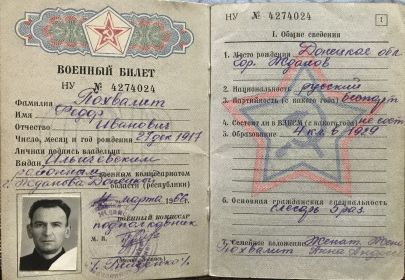 ВОЕННЫЙ БИЛЕТ
НУ № 4274024
Фамилия Похвалит
Имя Федор
Отчество Иванович
Число, месяц и год рождения 1917
Личная подпись владельца
Выдан Ильичовским
районным военным комиссариатом
г. Жданова Донецкой
области (республики)
марта 196
ВОЕННЫЙ КОМИССАР
подполковник
М. П.
НУ № 4274024
1
I. Общие сведения
1. Место рождения Донецкая обл
гор. Жданов
2. Национальность русский
3. Партийность (с какого года) беспарт
4. Состоит ли в ВЛКСМ (с какого года) не сост
5. Образование 4 кл. в 1929
6. Основная гражданская специальность
слесарь 5 раз.
7. Семейное положение Женат. Жена
Похвалит Анна